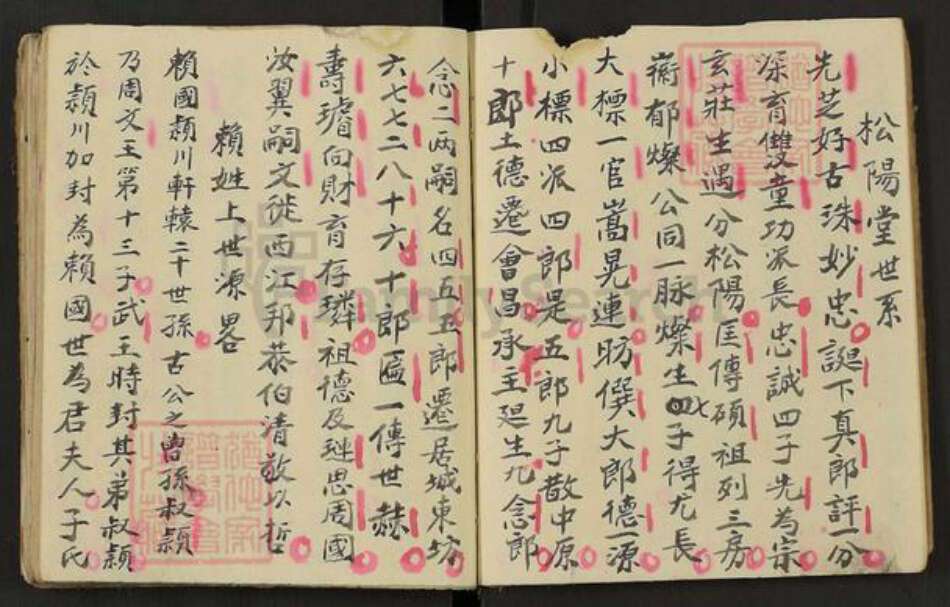 松陽堂世系
先芝好古洙妙忠誕下真郎評一分
深育雙童功派長忠誠四子先為宗
玄莊生遇分松陽匡傳碩祖列三房
衡郁燦公同一脉燦生四七子得尤長
大標一官嵩晃連昉僎大郎德一源
小標四派四郎是五郎九子散中原
十郎土德遷會昌承主廷生九念郎
念二两嗣名四五五郎遷居城東坊
六七七二八十六十郎匾一傳世赫
壽璿向財育存璘祖德及琎思周國
汝翼嗣文徙西江邦恭伯清敬以哲
賴姓上世源畧
賴國潁川軒轅二十世孫古公之曽孫叔潁
乃周文王第十三子武王時封其弟叔潁
於潁川加封為賴國世為君夫人子氏